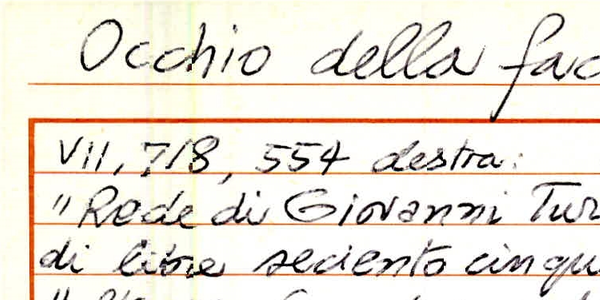 Occhio della fac
VII, 7/8, 554 destra:
"Rede di Giovanni Tur
di libre seciento cinqu